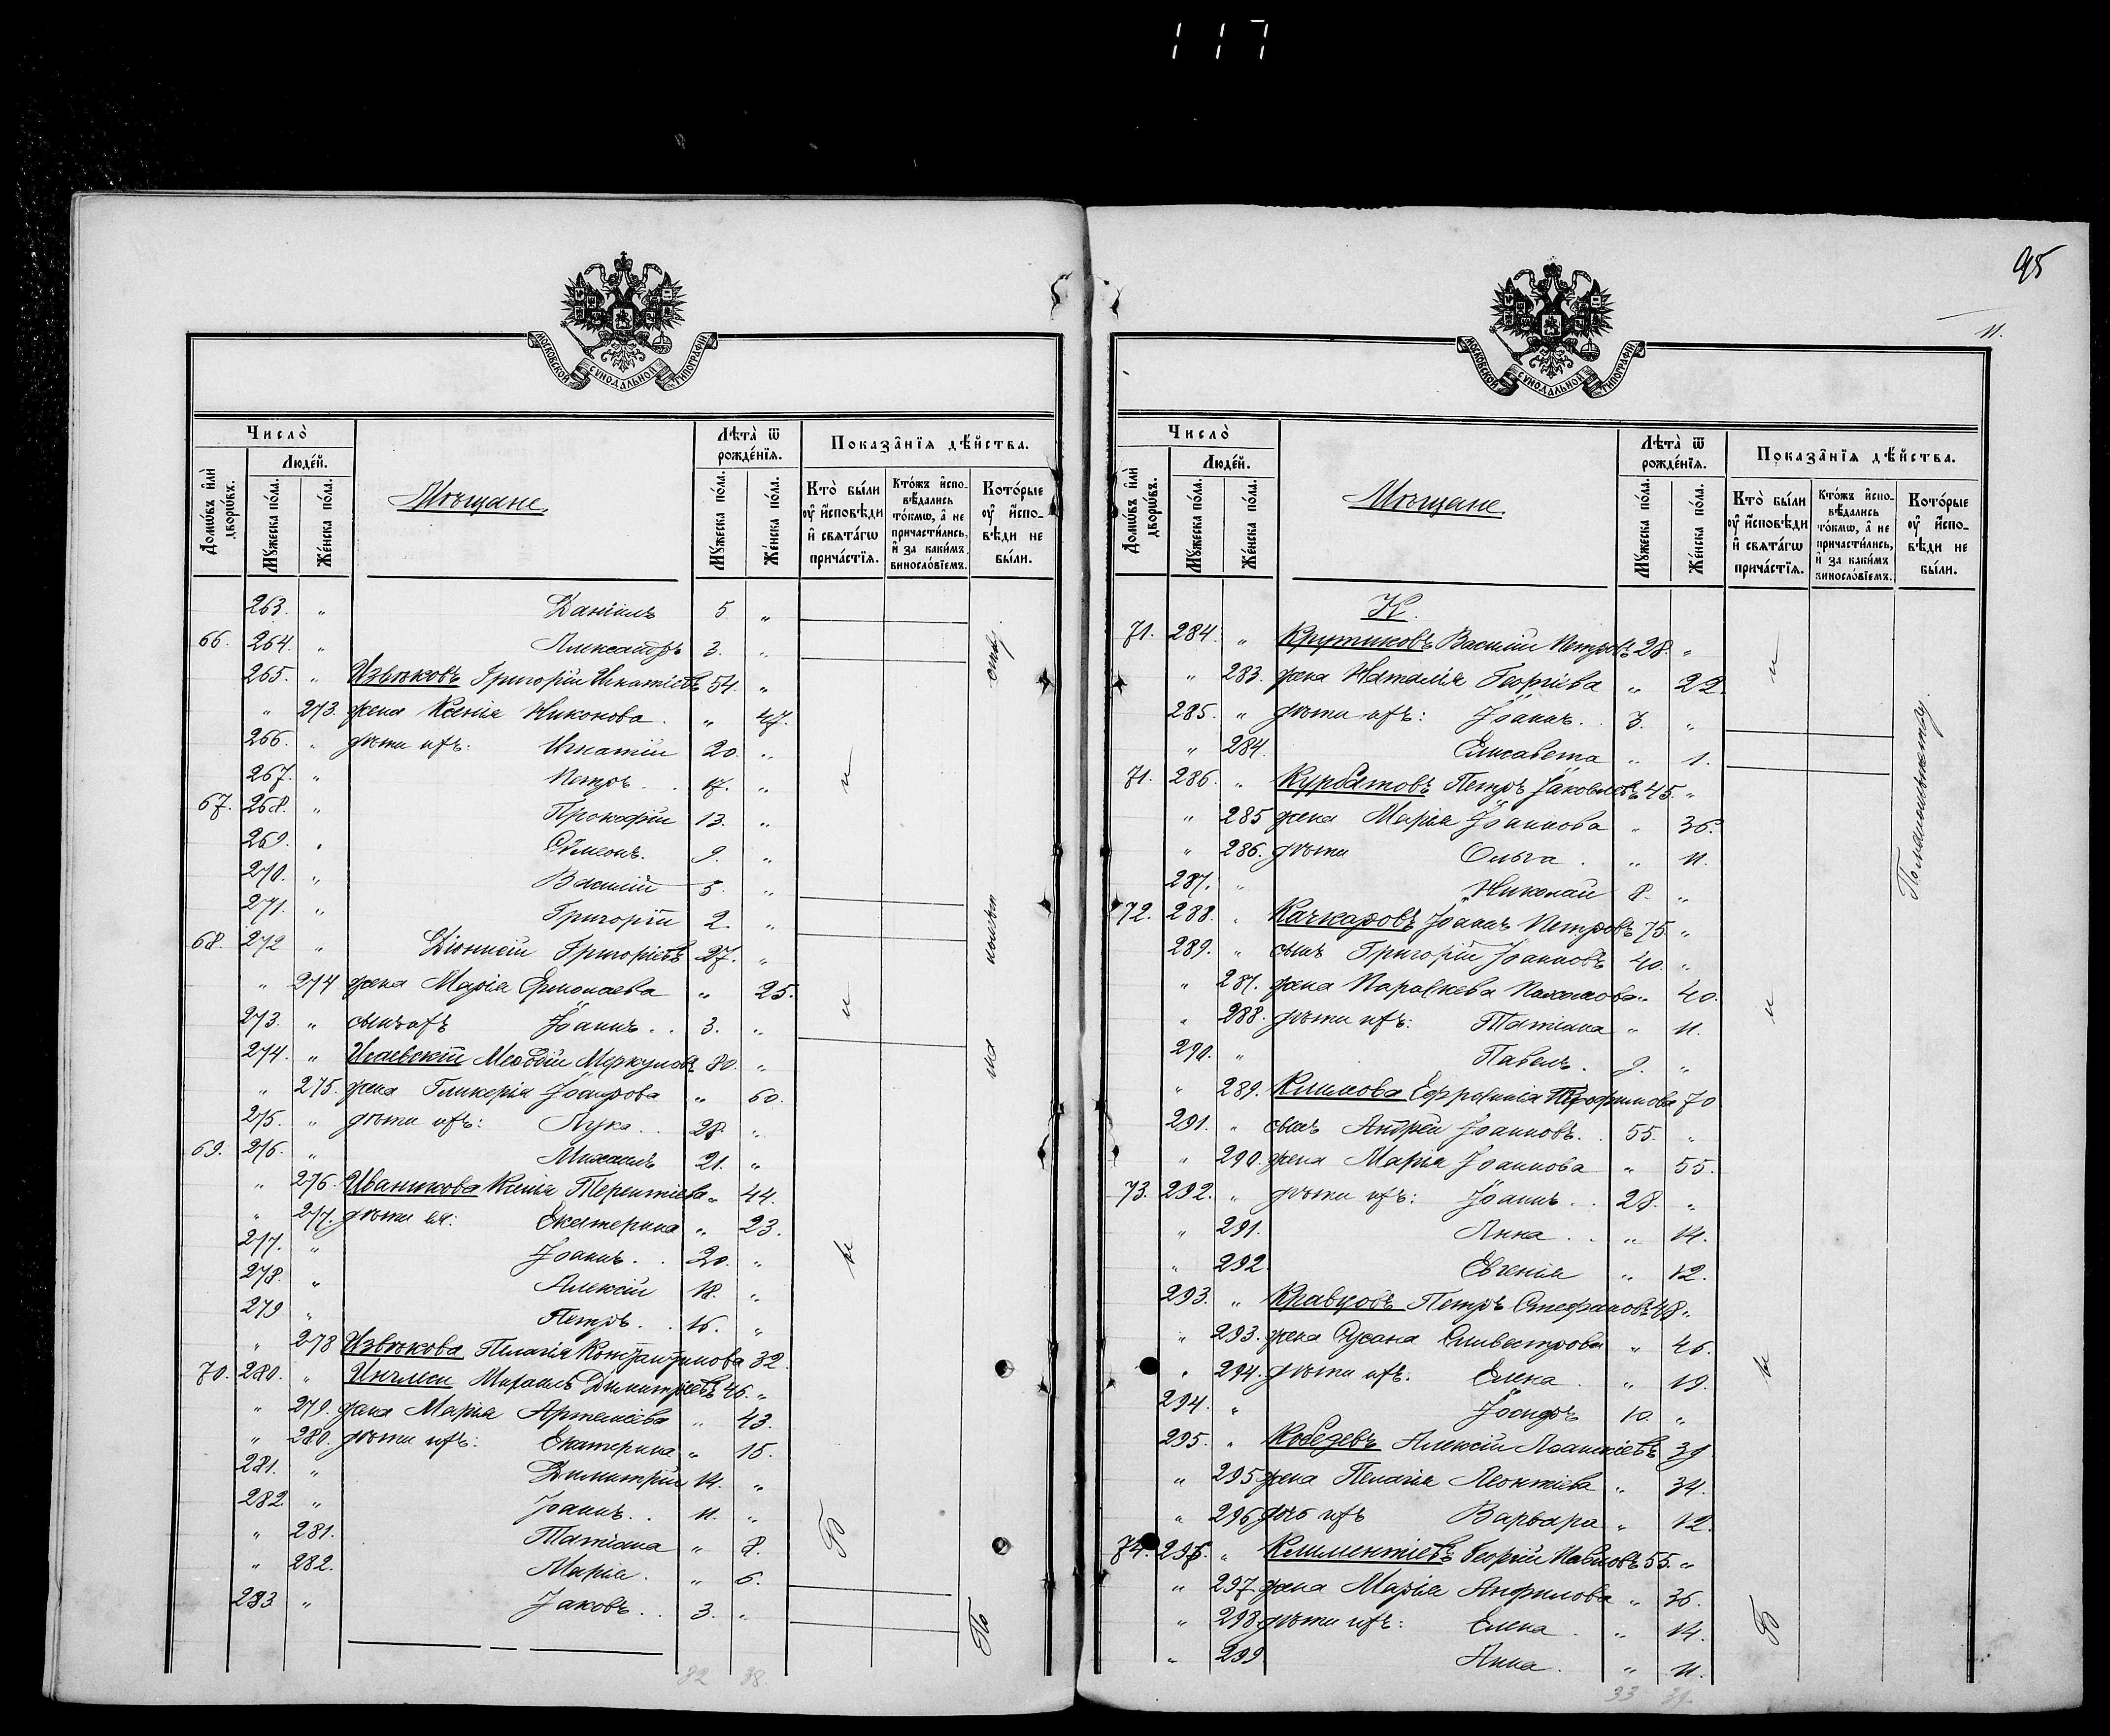 117
МОСКОВСКОЙ СѴНОДАЛЬНОЙ ТИПОГРАФІИ
Число̀
Людéй.
Домѡ́въ и҆лѝ дворѡ́въ.
Мꙋ́жеска по́ла.
Же́нска по́ла.
Мѣщане.
Лѣта̀ ѿ рожде́нїѧ.
Мꙋ́жеска по́ла.
Же́нска по́ла.
Показа̂нїѧ дѣ́йства.
Кто̀ бы́ли оу҆ и҆́сповѣди и҆ свѧта́гѡ прича́стїѧ.
Кто́жъ и҆спо-вѣ́дались то́кмѡ, а҆ не причасти́лись, и҆ за каки́мъ винослóвїемъ.
Кото́рые оу҆ и҆спо-вѣди не бы́ли.
263. " Даніилъ 5 "
66. 264. " Александръ 3. "
265. " Извѣковъ Григорій Игнатіевъ 54. "
" 273. жена Ксенія Никонова. " 47.
266. " дѣти ихъ: Игнатій 20 "
267. " Петръ 17. "
67. 268. " Прокофій 13. "
269. " Сѵмеонъ. 9. "
270. " Василій 5. "
271. " Григорій 2. "
68. 272 " Діонисій Григорьевъ 27. "
" 274 жена Марія Ермолаева " 25.
273. " сынъ ихъ Іоаннъ 3. "
274. " Исаевскій Меѳодій Меркуловъ 80. "
" 275. жена Гликерія Іосифова " 60.
275. " дѣти ихъ: Лука 28. "
69. 276. " Михаилъ 21. "
" 276. Иванникова Ксенія Терентіева " 44.
" 277. дѣти ея: Екатерина " 23.
277. " Іоаннъ 20. "
278. " Алексій 18. "
279 " Петръ 16. "
" 278 Извѣкова Пелагія Константинова 32.
70. 280. " Михаилъ Димитріевъ 46. "
" 279. жена Марія Артемьева " 43.
" 280. дѣти ихъ: Екатерина " 15.
281. " Димитрій 14. "
282. " Іоаннъ 11. "
" 281. Татіана " 8.
" 282. Марія " 6.
283 " Іаковъ 3. "
32 38.
и и и Б
По
95
11.
МОСКОВСКОЙ СѴНОДАЛЬНОЙ ТИПОГРАФІИ
Число̀
Людéй.
Домѡ́въ и҆лѝ дворѡ́въ.
Мꙋ́жеска по́ла.
Же́нска по́ла.
Мѣщане.
Лѣта̀ ѿ рожде́нїѧ.
Мꙋ́жеска по́ла.
Же́нска по́ла.
Показа̂нїѧ дѣ́йства.
Кто̀ бы́ли оу҆ и҆́сповѣди и҆ свѧта́гѡ прича́стїѧ.
Кто́жъ и҆спо-вѣ́дались то́кмѡ, а҆ не причасти́лись, и҆ за каки́мъ винослóвїемъ.
Кото́рые оу҆ и҆спо-вѣди не бы́ли.
К.
71. 284. " Крутиковъ Василій Петровъ 28. "
" 283. жена Наталія Георгіева " 22.
285. " дѣти ихъ: Іоаннъ 3. "
" 284. Елисавета " 1.
71. 286. " Курбатовъ Петръ Іаковлевъ 45. "
" 285 жена Марія Іоаннова " 36.
" 286. дѣти Ольга " 11.
287. " Николай 8. "
72. 288. " Качкаровъ Іоаннъ Петровъ 75. "
289. " сынъ Григорій Іоанновъ 40. "
" 287. жена Параскева Пахомова " 40.
" 288. дѣти ихъ: Татіана " 11.
290. " Павелъ 9. "
" 289. Климова Евфросинія Трофимова 70
291. " сынъ Андрей Іоанновъ 55. "
" 290. жена Марія Іоаннова " 55.
73. 292. " дѣти ихъ: Іоаннъ 28. "
" 291. Анна " 14.
" 292. Евгенія " 12.
293. " Кравцовъ Петръ Стефановъ 48 "
" 293. жена Сусана Сильвестрова " 46.
" 294. дѣти ихъ: Елена " 19.
294. " Іосифъ 10. "
295. " Алексій 39
" 295 жена Пелагія Леонтіева " 34.
" 296 дочь ихъ Варвара " 12.
74. 296. " Климентіевъ Георгій Павловъ 55. "
" 297 жена Марія Анфилова " 36.
" 298 дѣти ихъ: Елена " 14.
" 299 Анна " 11.
33 31.
и и и Б
По малолѣтству.